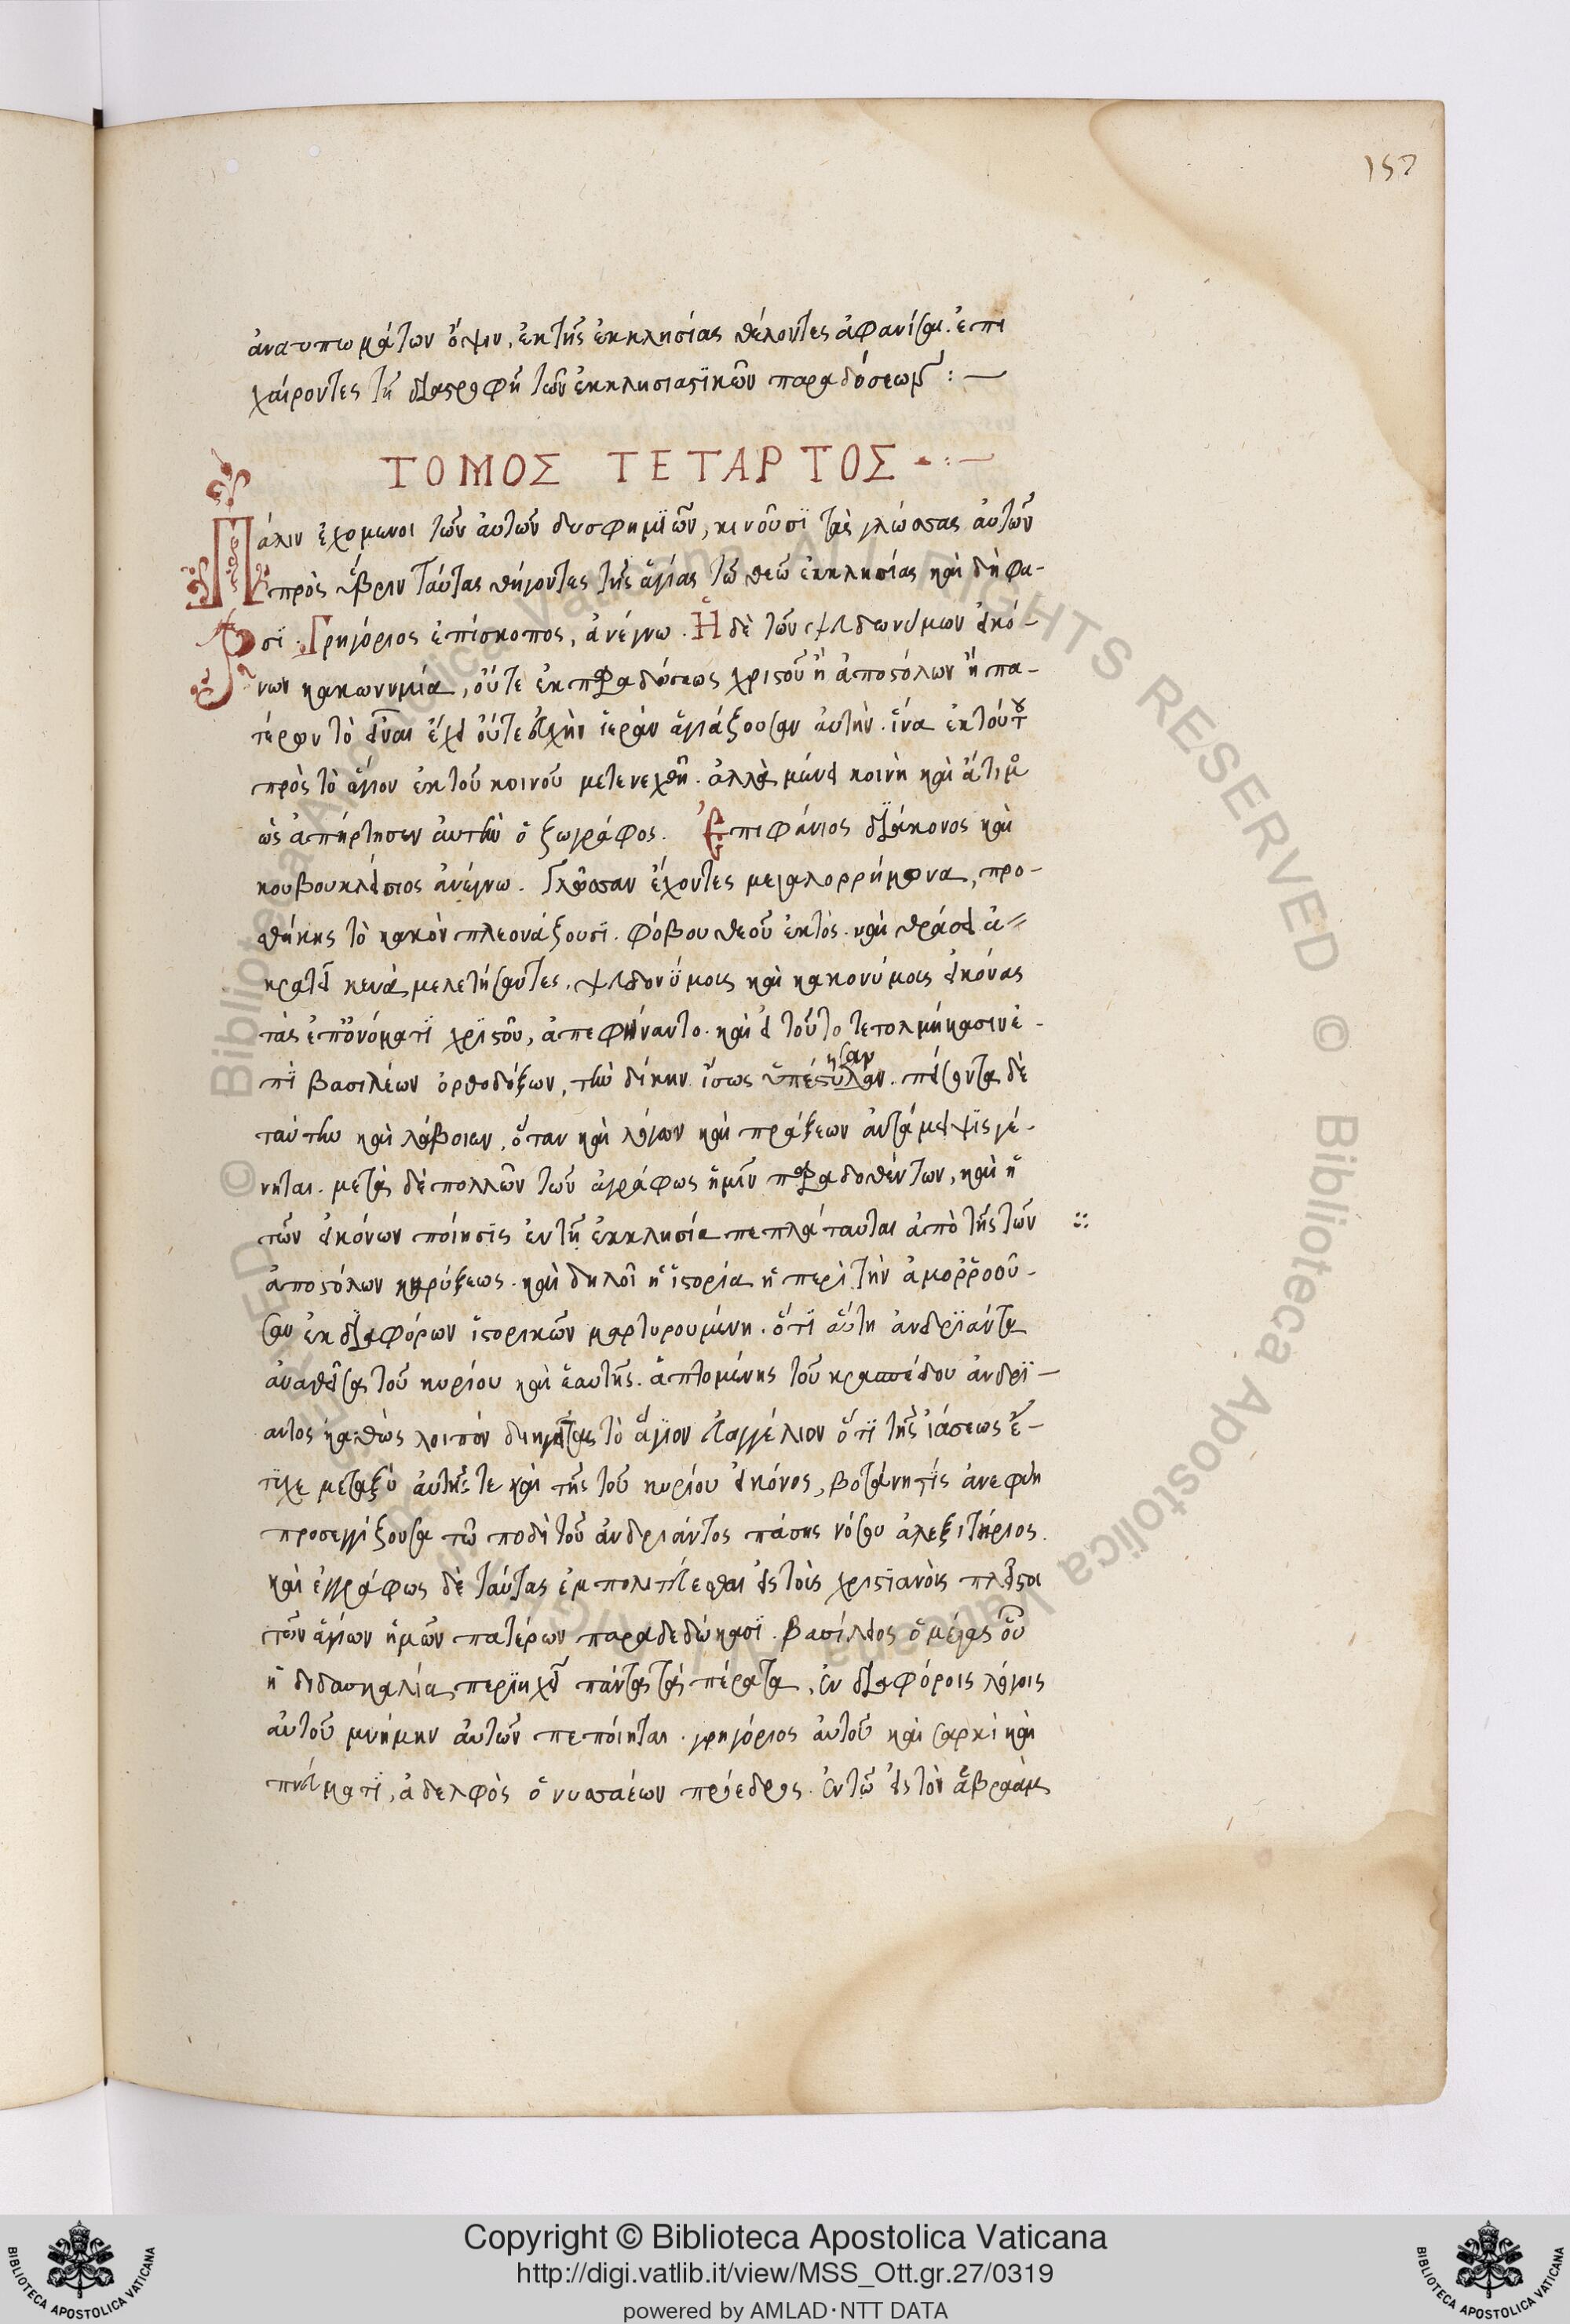 157
ἀνατυπωμάτων ὄψιν, ἐκ τῆς ἐκκλησίας θέλοντες ἀφανίσαι. ἐπι
χαίροντες τῆ διαστροφῆ τῶν ἐκκλησιαστϊκῶν παραδόσεων : —
ΤΟΜΟΣ ΤΕΤΑΡΤΟΣ · : —
Πάλιν ἐχομενοι τῶν αὐτῶν δυσφημϊῶν, κινοῦσϊ τὰς γλώσσας αὐτῶν
πρὸς ὕβριν ταύτας θήγοντες τῆς ἁγίας τῶ θεῶ ἐκκλησίας καὶ δὴ φα-
σϊ. Γρηγόριος ἐπίσκοπος, ἀνέγνω. Ἡ δὲ τῶν ψευδωνύμων εἰκό-
νων κακωνυμία, οὔτε ἐκ παραδόσεως χριστοῦ ἢ ἀποστόλων ἢ πα-
τέρων τὸ εἶναι ἔχει οὔτε εὐχὴν ἱερὰν ἁγιάζουσαν αὐτὴν. ἵνα ἐκ τούτου
πρὸς τὸ ἅγιον ἐκ τοῦ κοινοῦ μετενεχθῆ. ἀλλὰ μένει κοινὴ καὶ ἄτιμος
ὡς ἀπήρτησεν αὐτὴν ὁ ζωγράφος. Ἐπιφάνιος διάκονος καὶ
κουβουκλείσιος ἀνέγνω. Γλῶσσαν ἔχοντες μεγαλορρήμονα, προ-
θήκης τὸ κακὸν πλεονάζουσϊ. φόβου θεοῦ ἐκτὸς. καὶ θράσει ἀ-
κρατεῖ κενὰ μελετήσαντες. ψευδονύμοις καὶ κακονύμοις εἰκόνας
τὰς ἐπ' ὀνόματϊ χρϊστοῦ, ἀπεφήναντο. καὶ εἰ τοῦτο τετολμήκασιν ἐ-
πϊ βασιλέων ὀρθοδόξων, τὴν δίκην ἴσως ὑπέστϋλαν. πείσονται δὲ
ησαν
ταύτην καὶ λάβοιεν, ὅταν καὶ λόγων καὶ πράξεων ἀντάμειψϊς γέ-
νηται. μετὰ δὲ πολλῶν τῶν ἀγράφως ἡμῖν παραδοθέντων, καὶ ἡ
τῶν εἰκόνων ποίησϊς ἐν τῆ ἐκκλησία πεπλάτυνται ἀπὸ τῆς τῶν
ἀποστόλων κηρύξεως. καὶ δηλοῖ ἡ ἱστορία ἡ περὶ τὴν αἱμορῥοοῦ-
σαν ἐκ διαφόρων ἱστορικῶν μαρτυρουμένη. ὅτϊ αὕτη ἀνδρϊάντα
ἀναθεῖσα τοῦ κυρίου καὶ ἑαυτῆς. ἁπτομένης τοῦ κρασπέδου ἀνδρϊ-
αντος καθὼς λοιπὸν διηγεῖται τὸ ἅγϊον εὐαγγέλιον ὅτϊ τῆς ἰάσεως ἔ-
τϋχε μεταξὺ αὐτῆς τε καὶ τῆς τοῦ κυρίου εἰκόνος, βοτάνη τϊς ἀνεφύη
προσεγγίζουσα τῶ ποδὶ τοῦ ἀνδριάντος πάσης νόσου ἀλεξιτήριος.
καὶ ἐγγράφως δὲ ταύτας ἐμπολιτεύεσθαι εἰς τοὺς χριστϊανοὺς πλεῖστοι
τῶν ἁγίων ἡμῶν πατέρων παραδεδώκασϊ. βασίλειος ὁ μέγας οὗ
ἡ διδασκαλία περϊηχεῖ πάντα τὰ πέρατα, ἐν διαφόροις λόγοις
αὐτοῦ μνήμην αὐτῶν πεποίηται. γρηγόριος αὐτοῦ καὶ σαρκὶ καὶ
πνεύματϊ, ἀδελφὸς ὁ νυσσαέων πρόεδρος. ἐν τῶ εἰς τὸν ἁβραὰμ
Copyright © Biblioteca Apostolica Vaticana
http://digi.vatlib.it/view/MSS_Ott.gr.27/0319
powered by AMLAD·NTT DATA